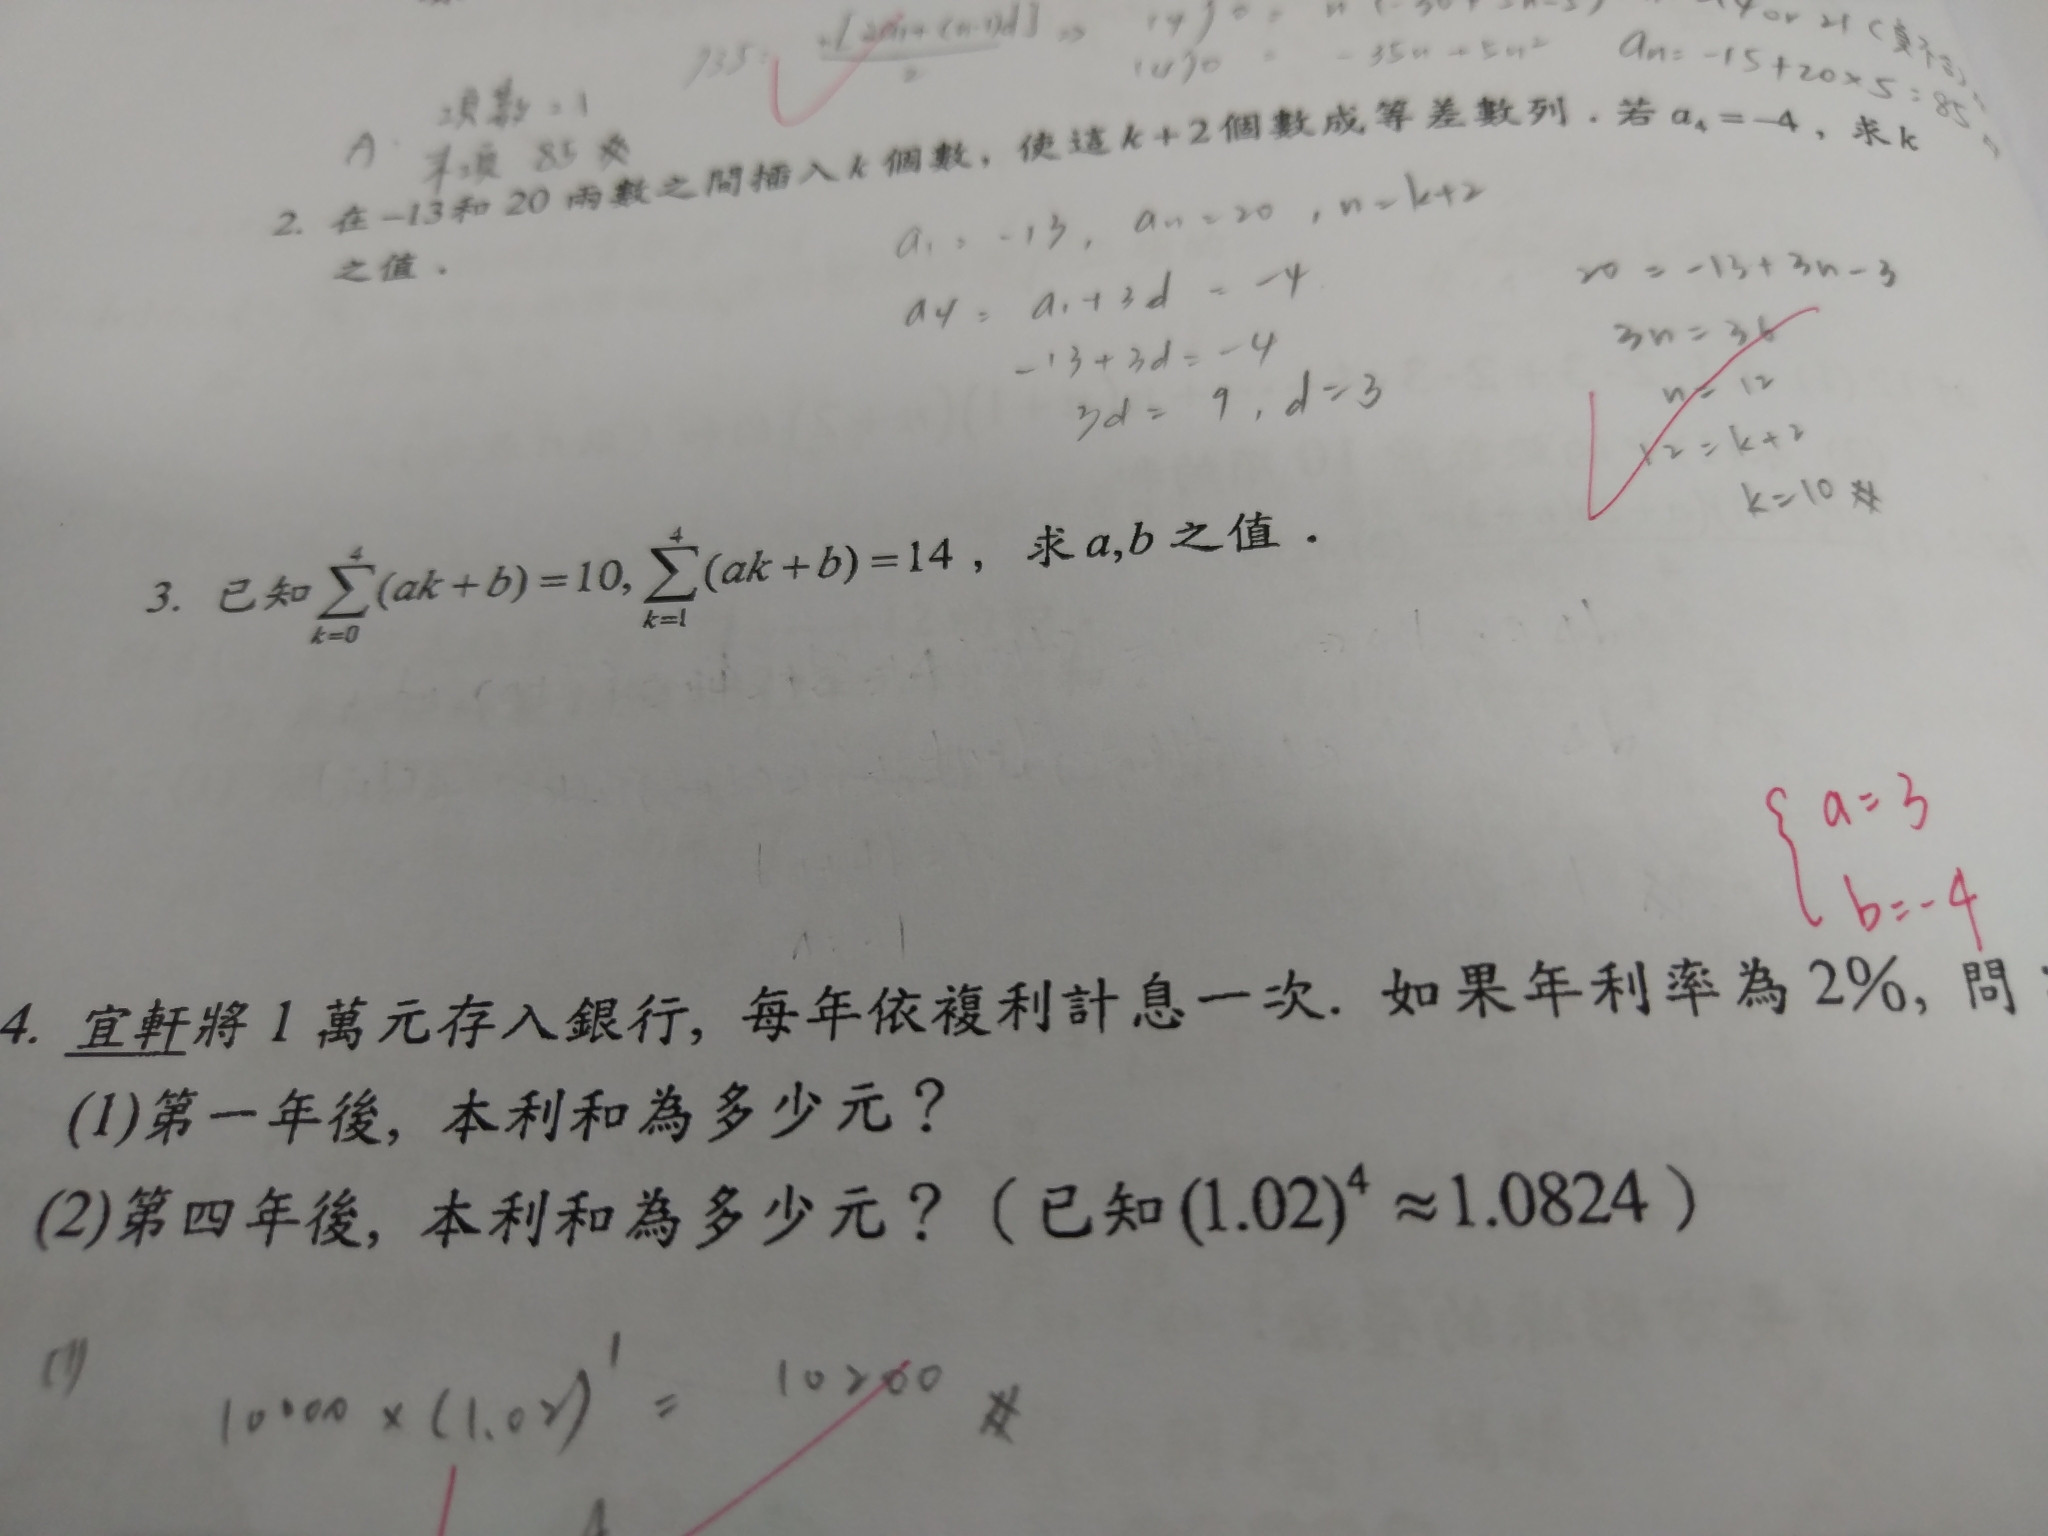 1470 = -35n + 5n²
an = -15 + 20 × 5 = 85
A. 項數 = 1
末項 85 #
2. 在 -13 和 20 兩數之間插入 k 個數, 使這 k + 2 個數成等差數列. 若 a₄ = -4, 求 k
之值.
a₁ = -13, an = 20, n = k+2
a4 = a₁ + 3d = -4
-13 + 3d = -4
3d = 9, d = 3
20 = -13 + 3n - 3
3n = 36
n = 12
12 = k + 2
k = 10 #
3. 已知 ∑_{k=0}^{4}(ak + b) = 10, ∑_{k=1}^{4}(ak + b) = 14, 求 a,b 之值.
{ a = 3
b = -4
4. 宜軒將 1 萬元存入銀行, 每年依複利計息一次. 如果年利率為 2%, 問
(1)第一年後, 本利和為多少元?
(2)第四年後, 本利和為多少元? (已知 (1.02)⁴ ≈ 1.0824)
(1)
10000 × (1.02)¹ = 10200 #